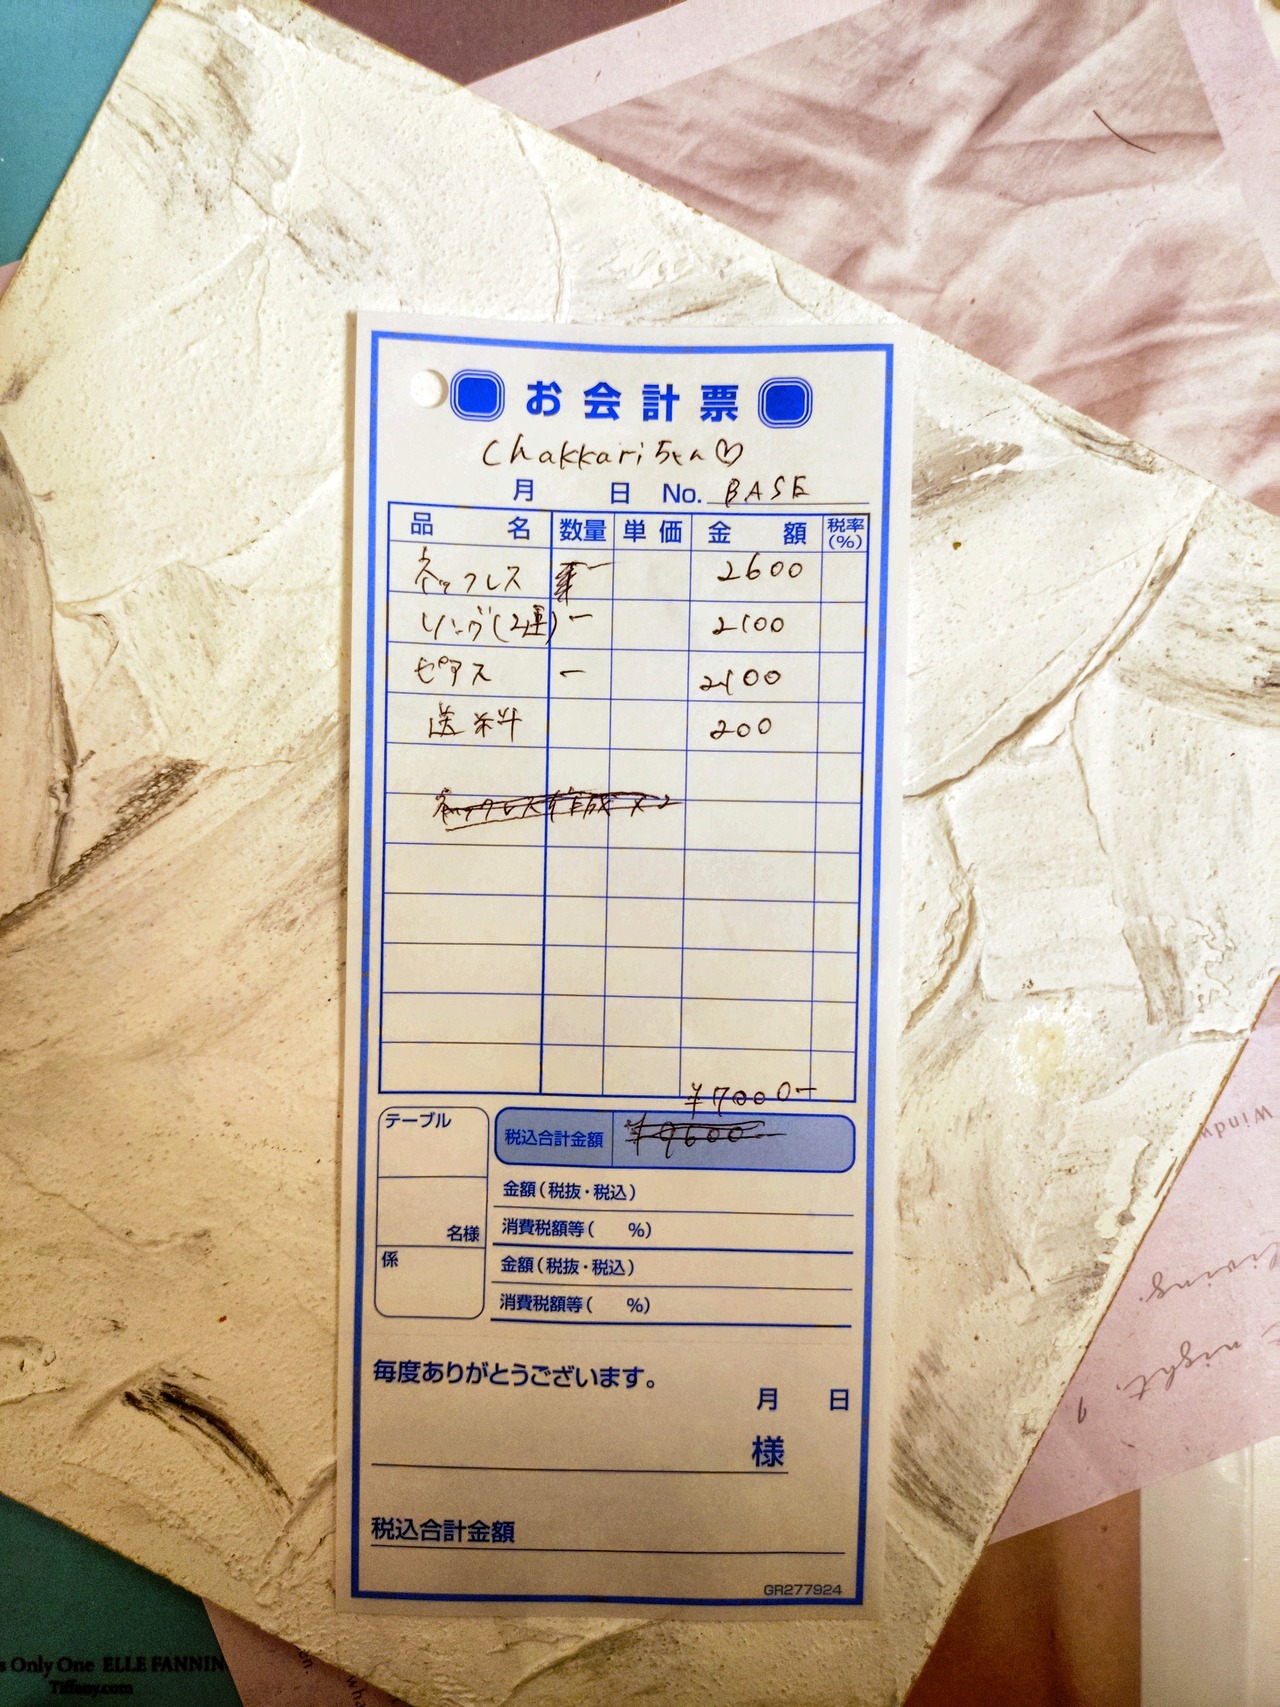 お会計票
Chakkariちゃん♡
月 日 No. BASE
品名 数量 単価 金額 税率(%)
ネックレス 一 2600
リング(2連) 一 2100
ピアス 一 2100
送料 200
ネックレス作成×2
¥7000-
税込合計金額 ¥9600-
テーブル
名様
係
金額(税抜・税込)
消費税額等( %)
金額(税抜・税込)
消費税額等( %)
毎度ありがとうございます。
月 日
様
税込合計金額
GR277924
Windy
living.
night.
s Only One ELLE FANNIN
Tiffany.com